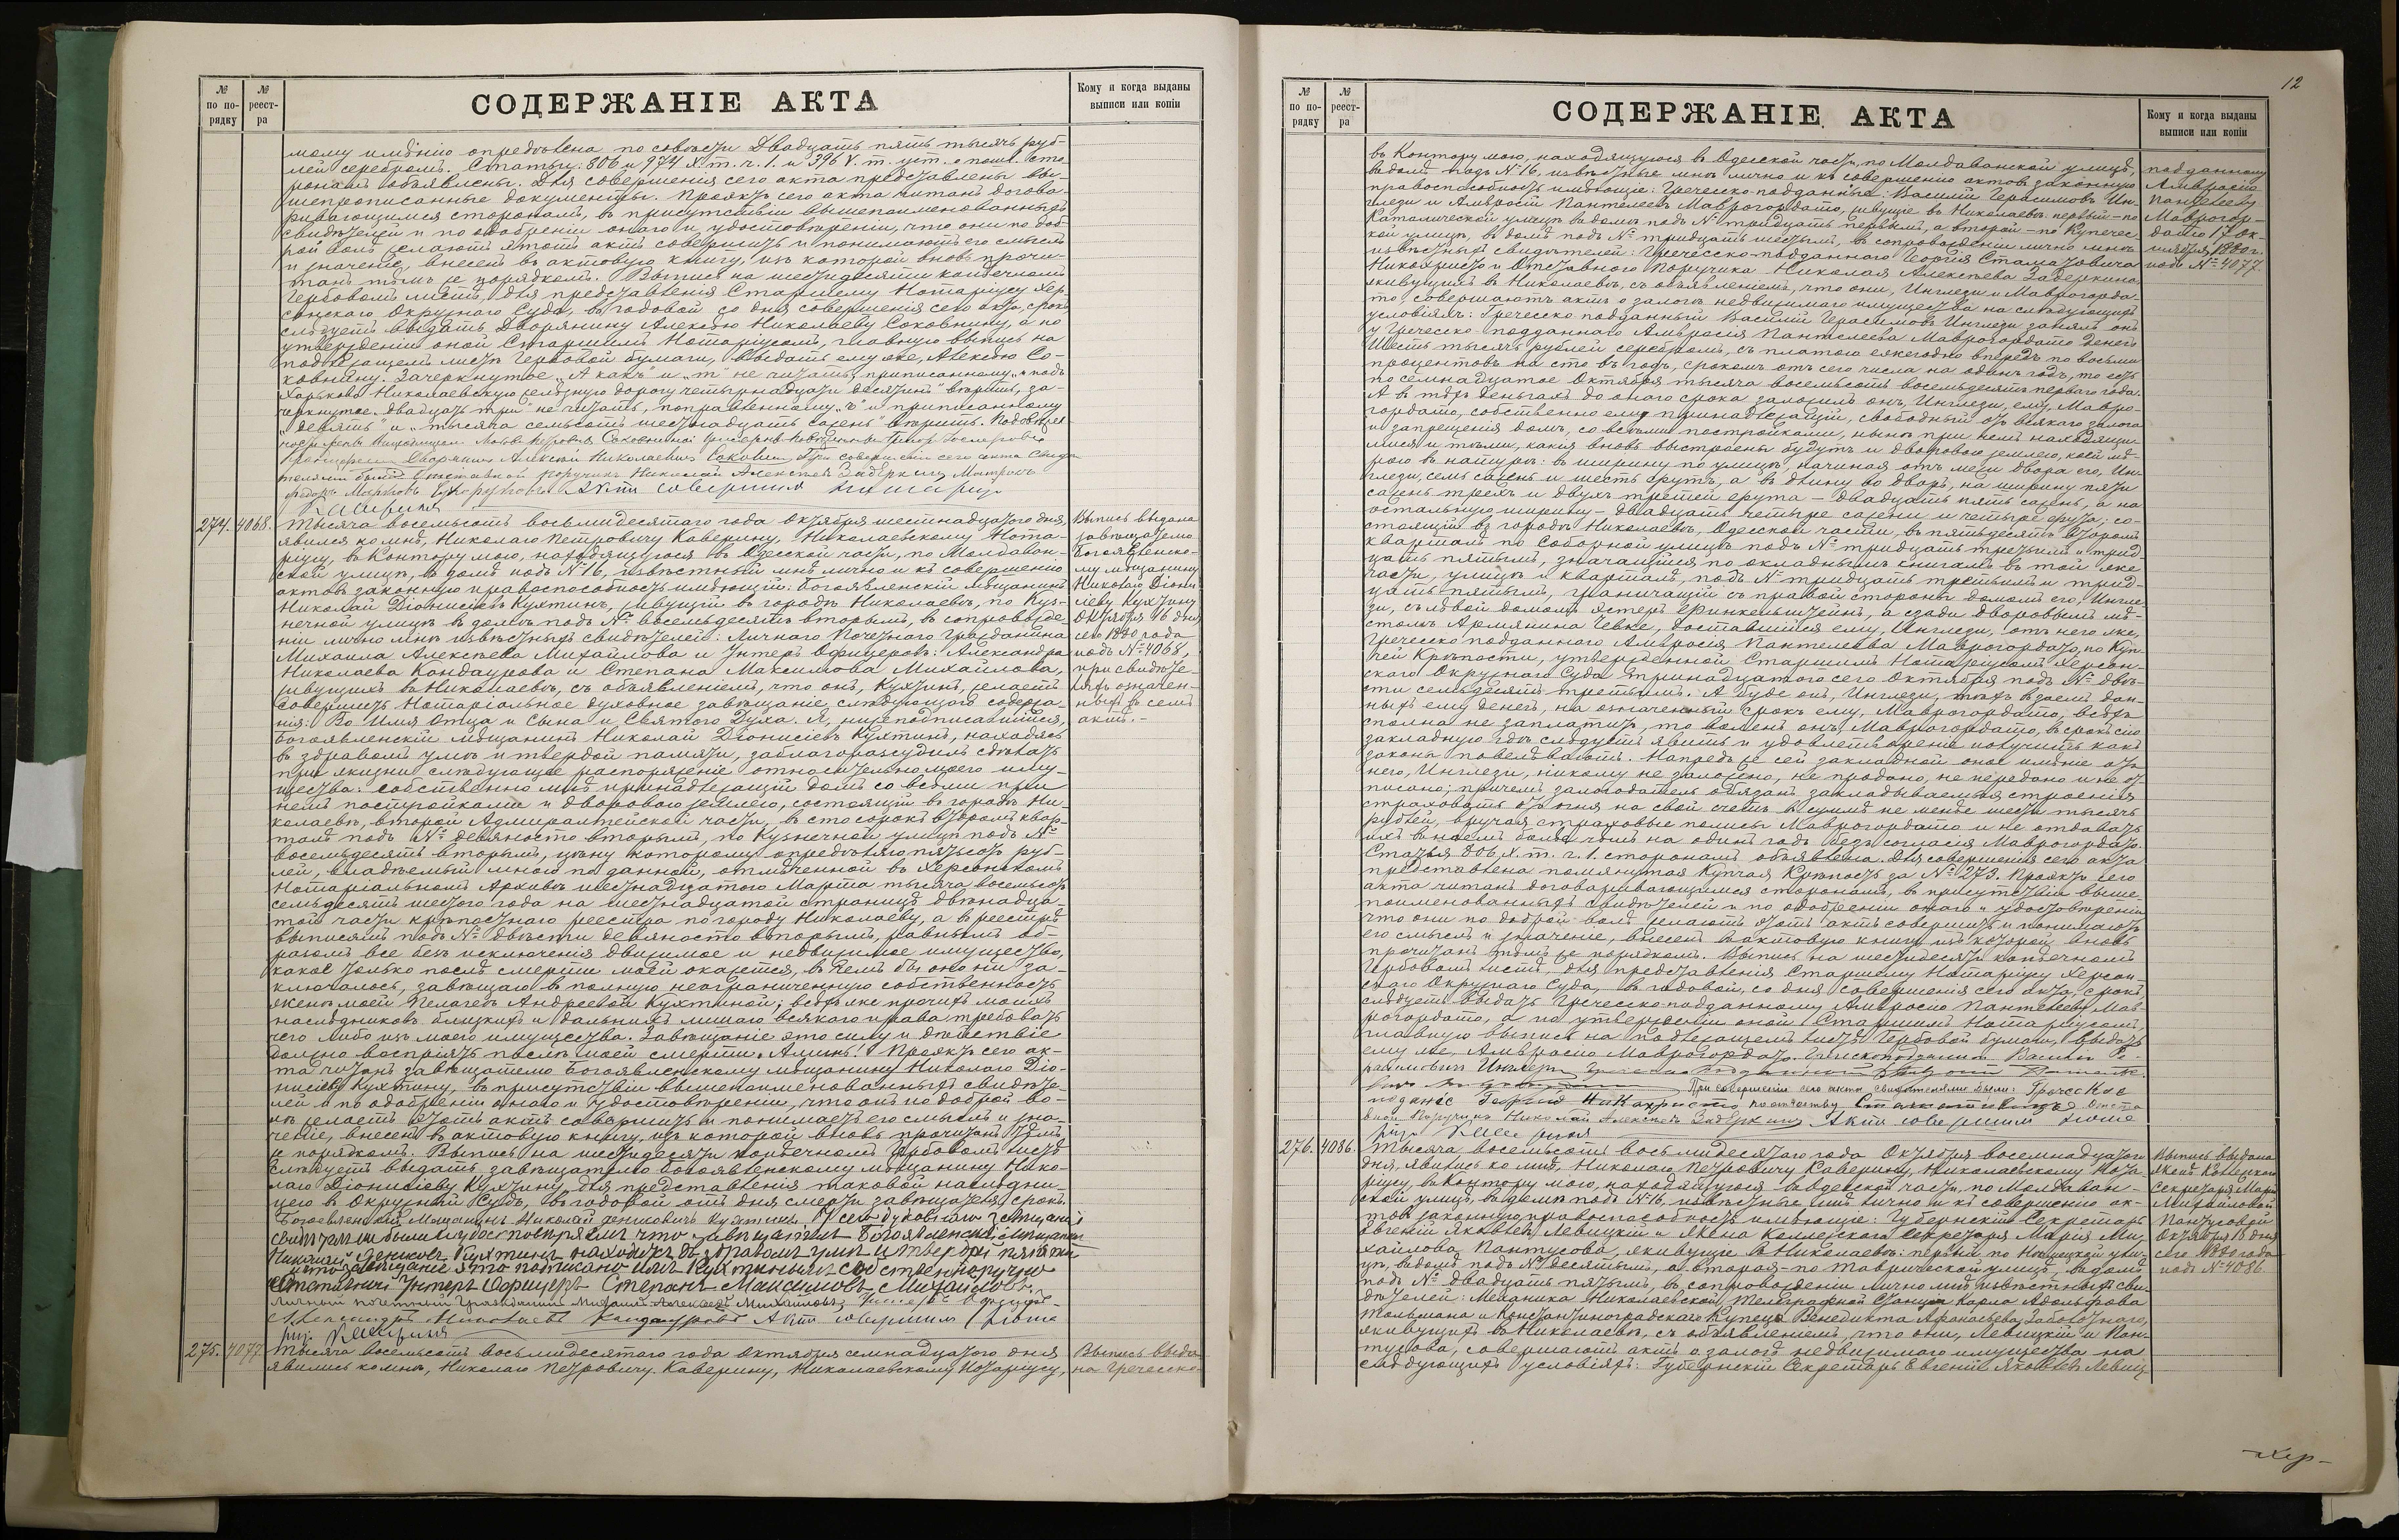 № по по-рядку
№ реест-ра
СОДЕРЖАНІЕ АКТА
Кому и когда выданы выписи или копіи
мому имѣнію опредѣлена по совѣсти Двадцать пять тысячъ руб-
лей серебромъ. Статьи: 806 и 974 X т. ч. 1. и 396 V. т. уст. о пошл. сто-
ронамъ объявлены. Для совершенія сего акта представлены вы-
шепрописанные документы. Проэктъ сего акта читанъ догова-
ривающимся сторонамъ, въ присутствіи вышепоименованныхъ
свидѣтелей и по одобреніи онаго и удостовѣреніи, что они по доб-
рой волѣ желаютъ этотъ актъ совершить и понимаютъ его смыслъ
и значеніе, внесенъ въ актовую книгу, изъ которой вновь прочи-
танъ тѣмъ же порядкомъ. Выпись на шестидесяти копѣечномъ
Гербовомъ листѣ, для представленія Старшему Нотаріусу Хер-
сонскаго Окружнаго Суда, въ годовой со дня совершенія сего акта, срокъ
слѣдуетъ выдать Дворянину Алексѣю Николаеву Соковнину, а по
утвержденіи оной Старшимъ Нотаріусомъ, главную выпись на
подлежащемъ листѣ Гербовой бумаги, выдать ему же, Алексѣю Со-
ковнину. Зачеркнутое „А какъ" и „т" не читать, приписанному „и подъ
Харьково Николаевскую желѣзную дорогу четырнадцати десятинъ" вѣрить, за-
черкнутое „двадцать три" не читать, поправленному „ъ" и приписанному
„девять" и „тысяча семьсотъ шестнадцать сажень" вѣрить.
Дворянинъ Алексѣй Николаевичъ Соковнинъ При совершеніи сего акта свидѣ-
телями были: Отставной Поручикъ Николай Алексѣевъ Задеркинъ
Актъ совершилъ Нотаріусъ
Каверинъ
274. 4068.
Тысяча восемьсотъ восьмидесятаго года Октября шестнадцатаго дня,
явился ко мнѣ, Николаю Петровичу Каверину, Николаевскому Нота-
ріусу, въ Контору мою, находящуюся въ Одесской части, по Молдаван-
ской улицѣ, въ домѣ подъ № 16, извѣстный мнѣ лично и къ совершенію
актовъ законную правоспособность имѣющій: Богоявленскій мѣщанинъ
Николай Діонисіевъ Кухтинъ, живущій въ городѣ Николаевѣ, по Куз-
нечной улицѣ въ домѣ подъ № восемьдесятъ вторымъ, въ сопровожде-
ніи лично мнѣ извѣстныхъ свидѣтелей: Личнаго Почетнаго Гражданина
Михаила Алексѣева Михайлова и Унтеръ Офицеровъ: Александра
Николаева Кандаурова и Степана Максимова Михайлова,
живущихъ въ Николаевѣ, съ объявленіемъ, что онъ, Кухтинъ, желаетъ
совершить Нотаріальное духовное завѣщаніе, слѣдующаго содержа-
нія: Во Имя Отца и Сына и Святаго Духа. Я, нижеподписавшійся,
Богоявленскій мѣщанинъ Николай Діонисіевъ Кухтинъ, находясь
въ здравомъ умѣ и твердой памяти, заблагоразсудилъ сдѣлать
при жизни слѣдующее распоряженіе относительно моего иму-
щества: собственно мнѣ принадлежащій домъ со всѣми при
немъ постройками и дворовою землею, состоящій въ городѣ Ни-
колаевѣ, второй Адмиралтейской части, въ сто сорокъ второмъ квар-
талѣ подъ № девяносто вторымъ, по Кузнечной улицѣ подъ №
восемьдесятъ вторымъ, цѣну которому опредѣляю пятьсотъ руб-
лей, владѣемый мною по данной, отмѣченной въ Херсонскомъ
Нотаріальномъ Архивѣ шестнадцатаго Марта тысяча восемьсотъ
семьдесятъ шестаго года на шестнадцатой страницѣ двѣнадца-
той части крѣпостнаго реестра по городу Николаеву, а въ реестрѣ
выписямъ подъ № двѣсти девяносто вторымъ, равнымъ об-
разомъ все безъ исключенія движимое и недвижимое имущество,
какое только послѣ смерти моей окажется, въ чемъ бы оно ни за-
ключалось, завѣщаю въ полную неограниченную собственность
женѣ моей Пелагеѣ Андреевой Кухтиной; всѣхъ же прочихъ моихъ
наслѣдниковъ близкихъ и дальнихъ лишаю всякаго права требовать
чего либо изъ моего имущества. Завѣщаніе это силу и дѣйствіе
должно воспріять послѣ моей смерти. Аминь! Проэктъ сего ак-
та читанъ завѣщателю Богоявленскому мѣщанину Николаю Діо-
нисіеву Кухтину, въ присутствіи вышепоименованныхъ свидѣте-
лей и по одобреніи онаго и удостовѣреніи, что онъ по доброй во-
лѣ желаетъ этотъ актъ совершить и понимаетъ его смыслъ и зна-
ченіе, внесенъ въ актовую книгу, изъ которой вновь прочитанъ тѣмъ
же порядкомъ. Выпись на шестидесяти копѣечномъ Гербовомъ листѣ
слѣдуетъ выдать завѣщателю Богоявленскому мѣщанину Нико-
лаю Діонисіеву Кухтину, для представленія таковой наслѣдни-
цею въ Окружный Судъ, въ годовой отъ дня смерти завѣщателя, срокъ.
Богоевленскій Мещанинъ Николай Денисовичъ Кухтинъ. У сего духовнаго завѣщанія
свидѣтелями были и удостовѣряемъ что завѣщатель Богоявленскій мѣщанин
Николай Денисовъ Кухтинъ находится въ здравомъ умѣ и твердой памяти
и что завѣщаніе это подписано имъ Кухтинымъ собственноручно
Отставной Унтеръ Офицеръ Степанъ Максимовъ Михайловъ.
Личный почетный Гражданинъ Михаилъ Алексѣевъ Михайловъ, Унтеръ Офицеръ
Александръ Николаевъ Кандауровъ Актъ совершилъ Нота-
ріусъ Каверинъ
Выпись выдана
завѣщателю
Богоявленско-
му мѣщанину
Николаю Діони-
сіеву Кухтину
Октября 16 дня
сего 1880 года
подъ № 4068,
при свидѣте-
ляхъ означен-
ныхъ въ семъ
актѣ.-
275. 4077.
Тысяча восемьсотъ восьмидесятаго года Октября семнадцатаго дня
явились ко мнѣ, Николаю Петровичу Каверину, Николаевскому Нотаріусу,
Выпись выда-
на Греческо-
12
№ по по-рядку
№ реест-ра
СОДЕРЖАНІЕ АКТА
Кому и когда выданы выписи или копіи
въ Контору мою, находящуюся въ Одесской части, по Молдаванской улицѣ,
въ домѣ подъ № 16, извѣстные мнѣ лично и къ совершенію актовъ законную
правоспособность имѣющіе: Греческо-подданные: Василій Герасимовъ Ин-
глези и Амвросій Пантелеевъ Маврогордато, живущіе въ Николаевѣ: первый - по
Католической улицѣ въ домѣ подъ № тридцать первымъ, а второй - по Купечес-
кой улицѣ, въ домѣ подъ № тридцать шестымъ, въ сопровожденіи лично мнѣ
извѣстныхъ свидѣтелей: Греческо-подданнаго Георгія Стаматовича
Никохристо и Отставнаго Поручика Николая Алексѣева Задеркина,
живущихъ въ Николаевѣ, съ объявленіемъ, что они, Инглези и Маврогорда-
то, совершаютъ актъ о залогѣ недвижимаго имущества на слѣдующихъ
условіяхъ: Греческо-подданный Василій Герасимовъ Инглези занялъ онъ
у Греческо-подданнаго Амвросія Пантелеева Маврогордато денегъ
Шесть тысячъ рублей серебромъ, съ платою ежегодно впередъ по восьми
процентовъ на сто въ годъ, срокомъ отъ сего числа на одинъ годъ, то есть
по семнадцатое Октября тысяча восемьсотъ восемьдесятъ перваго года.
А въ тѣхъ деньгахъ до онаго срока заложилъ онъ, Инглези, ему, Мавро-
гордато, собственно ему принадлежащій, свободный отъ всякаго залога
и запрещенія домъ, со всѣми постройками, нынѣ при немъ находящи-
мися и тѣми, какія вновь выстроены будутъ и дворовою землею, коей мѣ-
рою въ натурѣ: въ ширину по улицѣ, начиная отъ межи двора его, Ин-
глези, семь сажень и шесть футъ, а въ длину во дворъ, на ширину пяти
сажень трехъ и двухъ третей фута - двадцать пять сажень, а на
остальную ширину - двадцать четыре сажени и четыре фута; со-
стоящій въ городѣ Николаевѣ, Одесской части, въ пятьдесятъ второмъ
кварталѣ по Соборной улицѣ подъ № тридцать третьимъ и трид-
цать пятымъ, значащійся по окладнымъ книгамъ въ той же
части, улицѣ и кварталѣ, подъ № тридцать третьимъ и трид-
цать пятымъ, граничащій съ правой стороны домомъ его, Ингле-
зи, съ лѣвой домомъ Эстеръ Финкельштейнъ, а сзади дворовымъ мѣ-
стомъ Армянина Чевке, доставшійся ему, Инглези, отъ него же,
Греческо-подданнаго Амвросія Пантелеева Маврогордато, по Куп-
чей Крѣпости, утвержденной Старшимъ Нотаріусомъ Херсон-
скаго Окружнаго Суда тринадцатаго сего Октября подъ № двѣ-
сти семьдесятъ третьимъ. А буде онъ, Инглези, тѣхъ взаемъ дан-
ныхъ ему денегъ, на означенный срокъ ему, Маврогордато, всѣхъ
сполна не заплатитъ, то воленъ онъ, Маврогордато, въ срокъ сію
закладную гдѣ слѣдуетъ явить и удовлетвореніе получить какъ
законы повелѣваютъ. Напредь же сей закладной оное имѣніе отъ
него, Инглези, никому не заложено, не продано, не передано и не от-
писано; причемъ залогодатель обязанъ закладываемыя строенія
страховать отъ огня на свой счетъ въ суммѣ не менѣе шести тысячъ
рублей, вручая страховые полисы Маврогордато и не отдавать
ихъ въ наемъ болѣе чѣмъ на одинъ годъ безъ согласія Маврогордато.
Статья 806, X. т. ч. 1. сторонамъ объявлена. Для совершенія сего акта
представлена помянутая Купчая Крѣпость за № 273. Проэктъ сего
акта читанъ договаривающимся сторонамъ, въ присутствіи выше-
поименованныхъ свидѣтелей и по одобреніи онаго и удостовѣреніи
что они по доброй волѣ желаютъ этотъ актъ совершить и понимаютъ
его смыслъ и значеніе, внесенъ въ актовую книгу изъ которой вновь
прочитанъ тѣмъ же порядкомъ. Выпись на шестидесяти копѣечномъ
Гербовомъ листѣ, для представленія Старшему Нотаріусу Херсон-
скаго Окружнаго Суда, въ годовой, со дня совершенія сего акта, срокъ
слѣдуетъ выдать Греческо-подданному Амвросію Пантелееву Мав-
рогордато, а по утвержденіи оной Старшимъ Нотаріусомъ,
главную выпись на подлежащемъ листѣ Гербовой бумаги, выдать
ему же, Амвросію Маврогордато. Греческоподданный Василій Ге-
расимовичъ Инглези
При совершеніи сего акта свидѣтелями были: Греческо
поданес Георгио Никохристо по отчеству Стаматовичъ Отста-
вной Поручикъ Николай Алексѣевъ Задеркинъ Актъ совершилъ Нота-
ріусъ Каверинъ
подданному
Амвросію
Пантелееву
Маврогор-
дато 17 Ок-
тября 1880 г.
подъ № 4077.
276. 4086.
Тысяча восемьсотъ восьмидесятаго года Октября восемнадцатаго
дня, явились ко мнѣ, Николаю Петровичу Каверину, Николаевскому Нота-
ріусу, въ Контору мою, находящуюся въ Одесской части, по Молдаван-
ской улицѣ, въ домѣ подъ № 16, извѣстные мнѣ лично и къ совершенію ак-
товъ законную правоспособность имѣющіе: Губернскій Секретарь
Евгеній Яковлевъ Левицкій и Жена Коллежскаго Секретаря Марія Ми-
хайлова Пантусова, живущіе въ Николаевѣ: первый по Нѣмецкой ули-
цѣ, въ домѣ подъ № десятымъ, а вторая - по Таврической улицѣ, въ домѣ
подъ № двадцать пятымъ, въ сопровожденіи лично мнѣ извѣстныхъ сви-
дѣтелей: Механика Николаевской Телеграфной Станціи Карла Адольфова
Тольмана и Константиноградскаго Купца Венедикта Афанасьева Заболотнаго,
живущихъ въ Николаевѣ, съ объявленіемъ, что они, Левицкій и Пан-
тусова, совершаютъ актъ о залогѣ недвижимаго имущества на
слѣдующихъ условіяхъ: Губернскій Секретарь Евгеній Яковлевъ Левиц-
Выпись выдана
женѣ Коллежскаго
Секретаря Маріи
Михайловой
Пантусовой
Октября 18 дня
сего 1880 года
подъ № 4086.